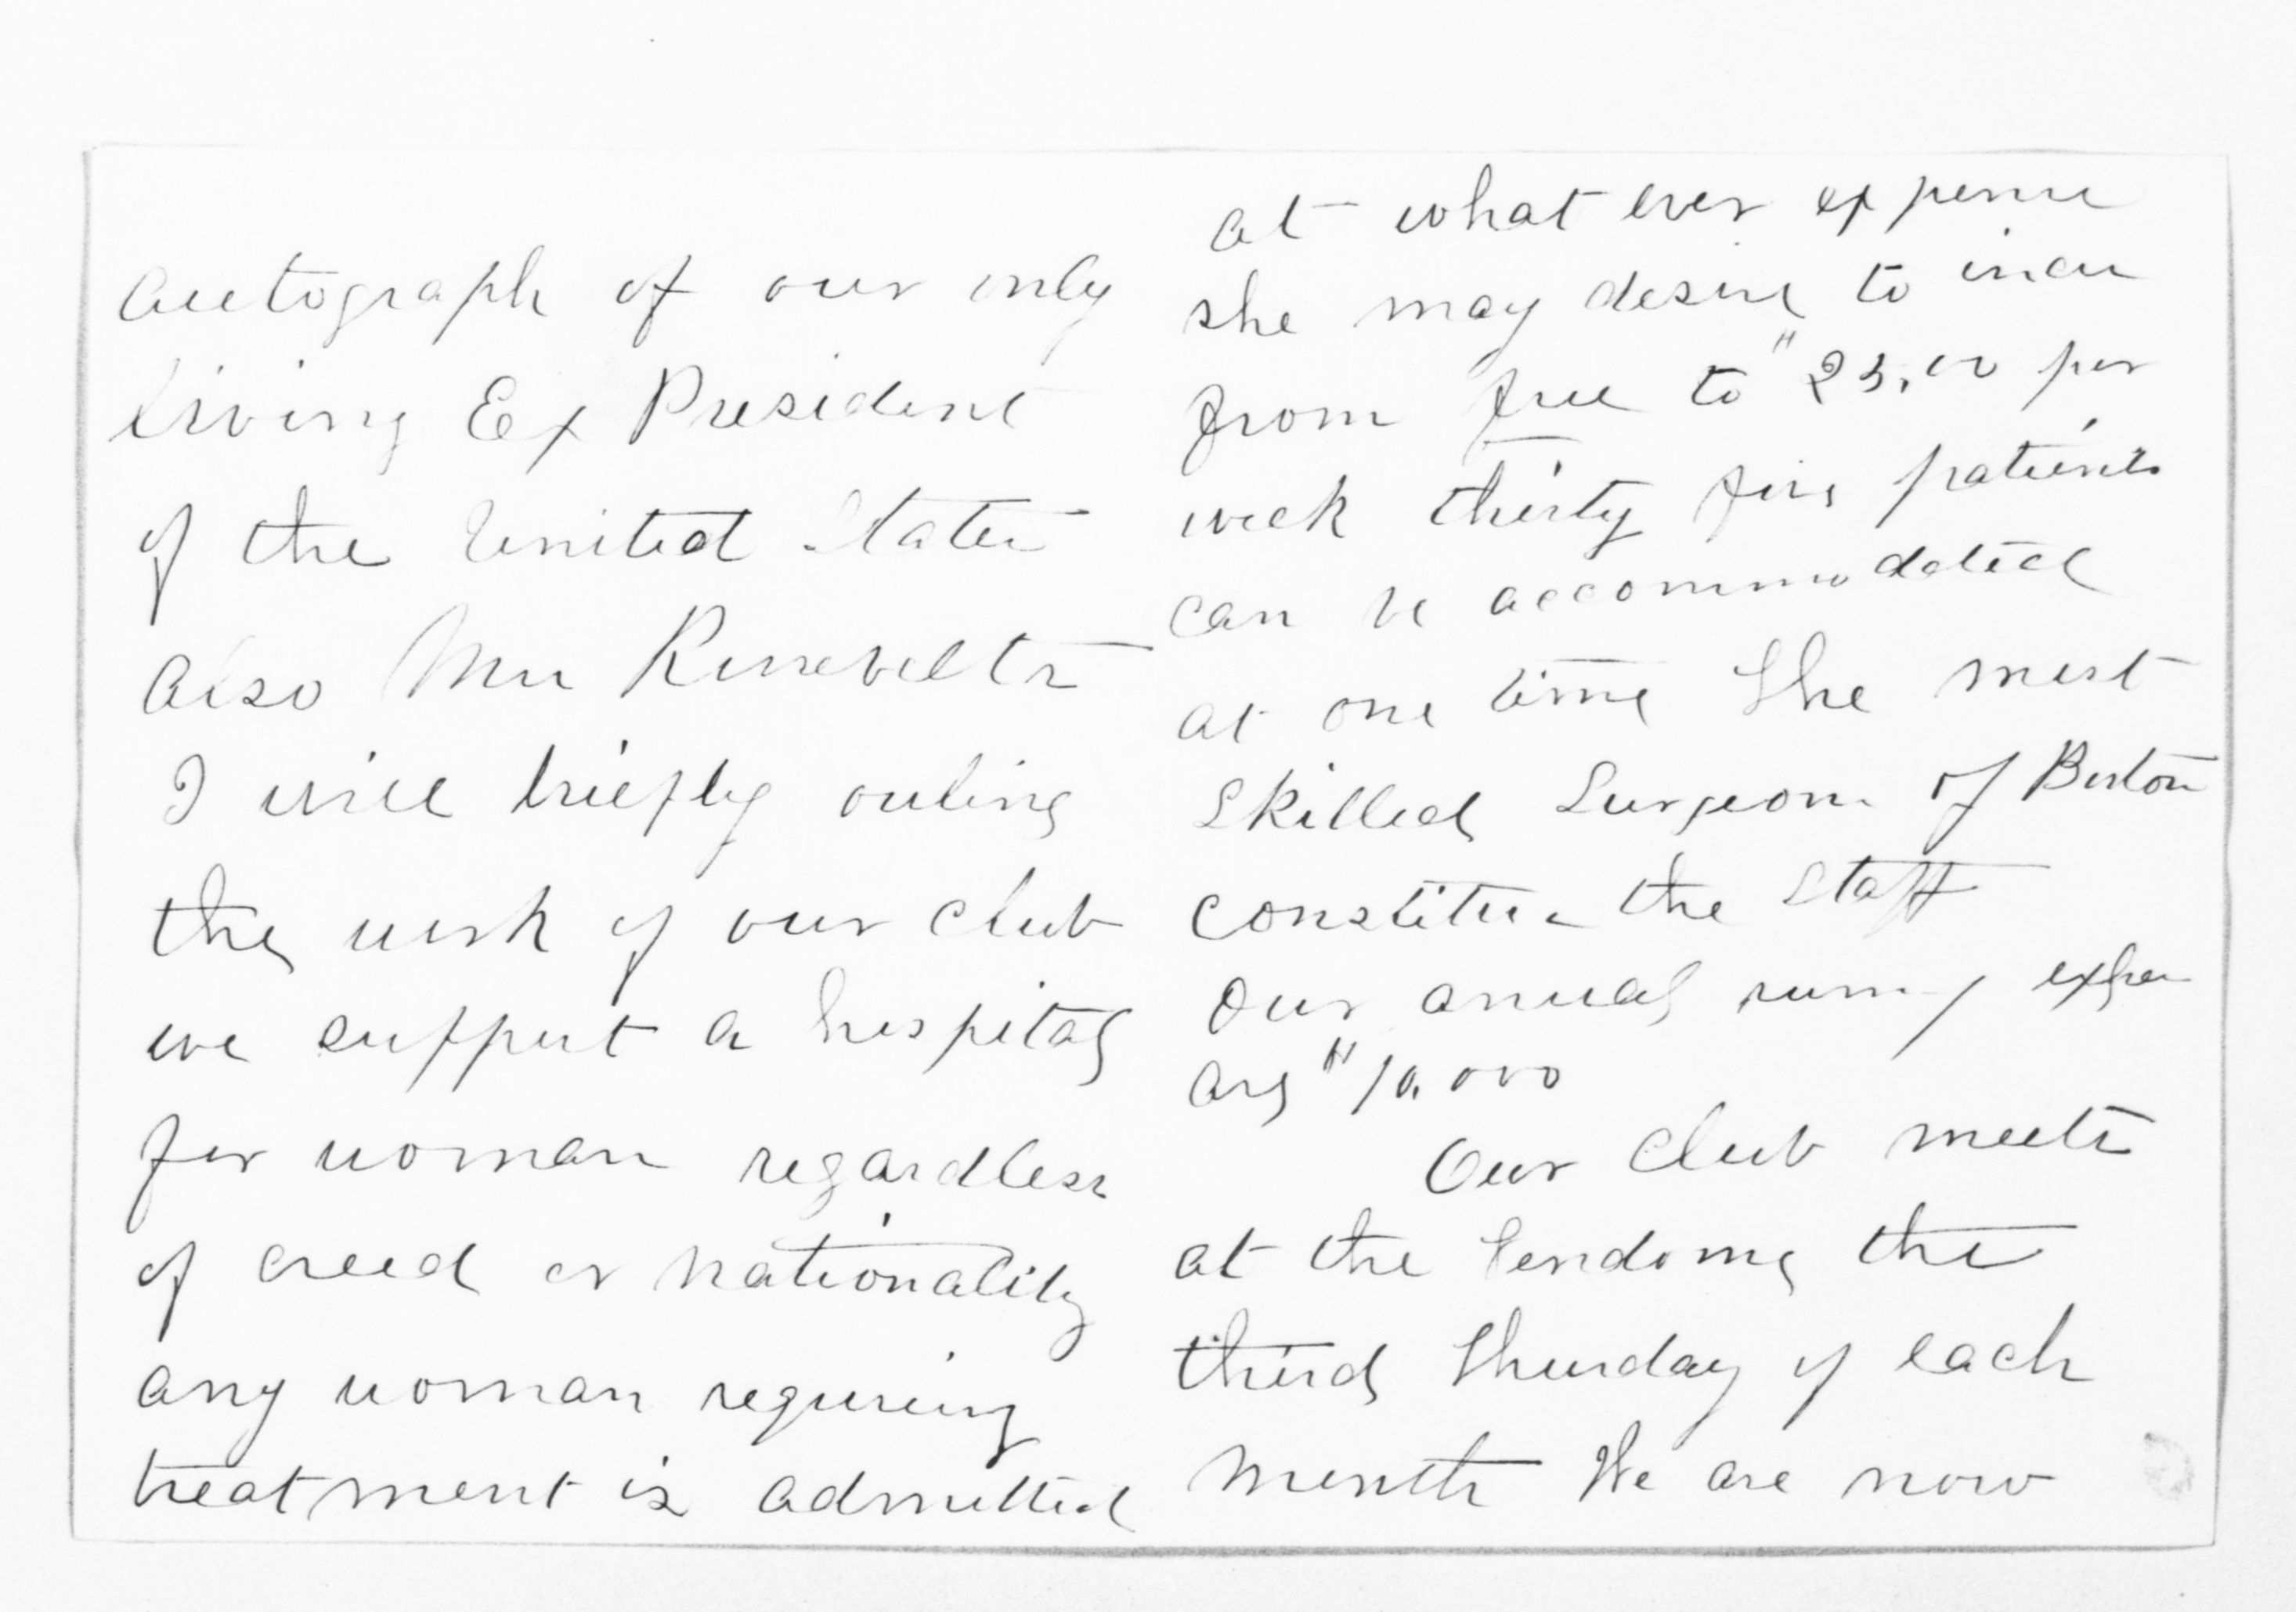 autograph of our only
living Ex President
of the United States
also Mrs Roosevelts
I will briefly outline
the work of our club
we support a hospital
for woman regardless
of creed or nationality
any woman requiring
treatment is admitted
at what ever expense
she may desire to incur
from free to "25.00 per
week thirty five patients
can be accommodated
at one time The most
Skilled Surgeons of Boston
constitute the Staff
Our anual runing expen
are "10,000
Our club meets
at the Vendome the
third Thursday of each
month We are now